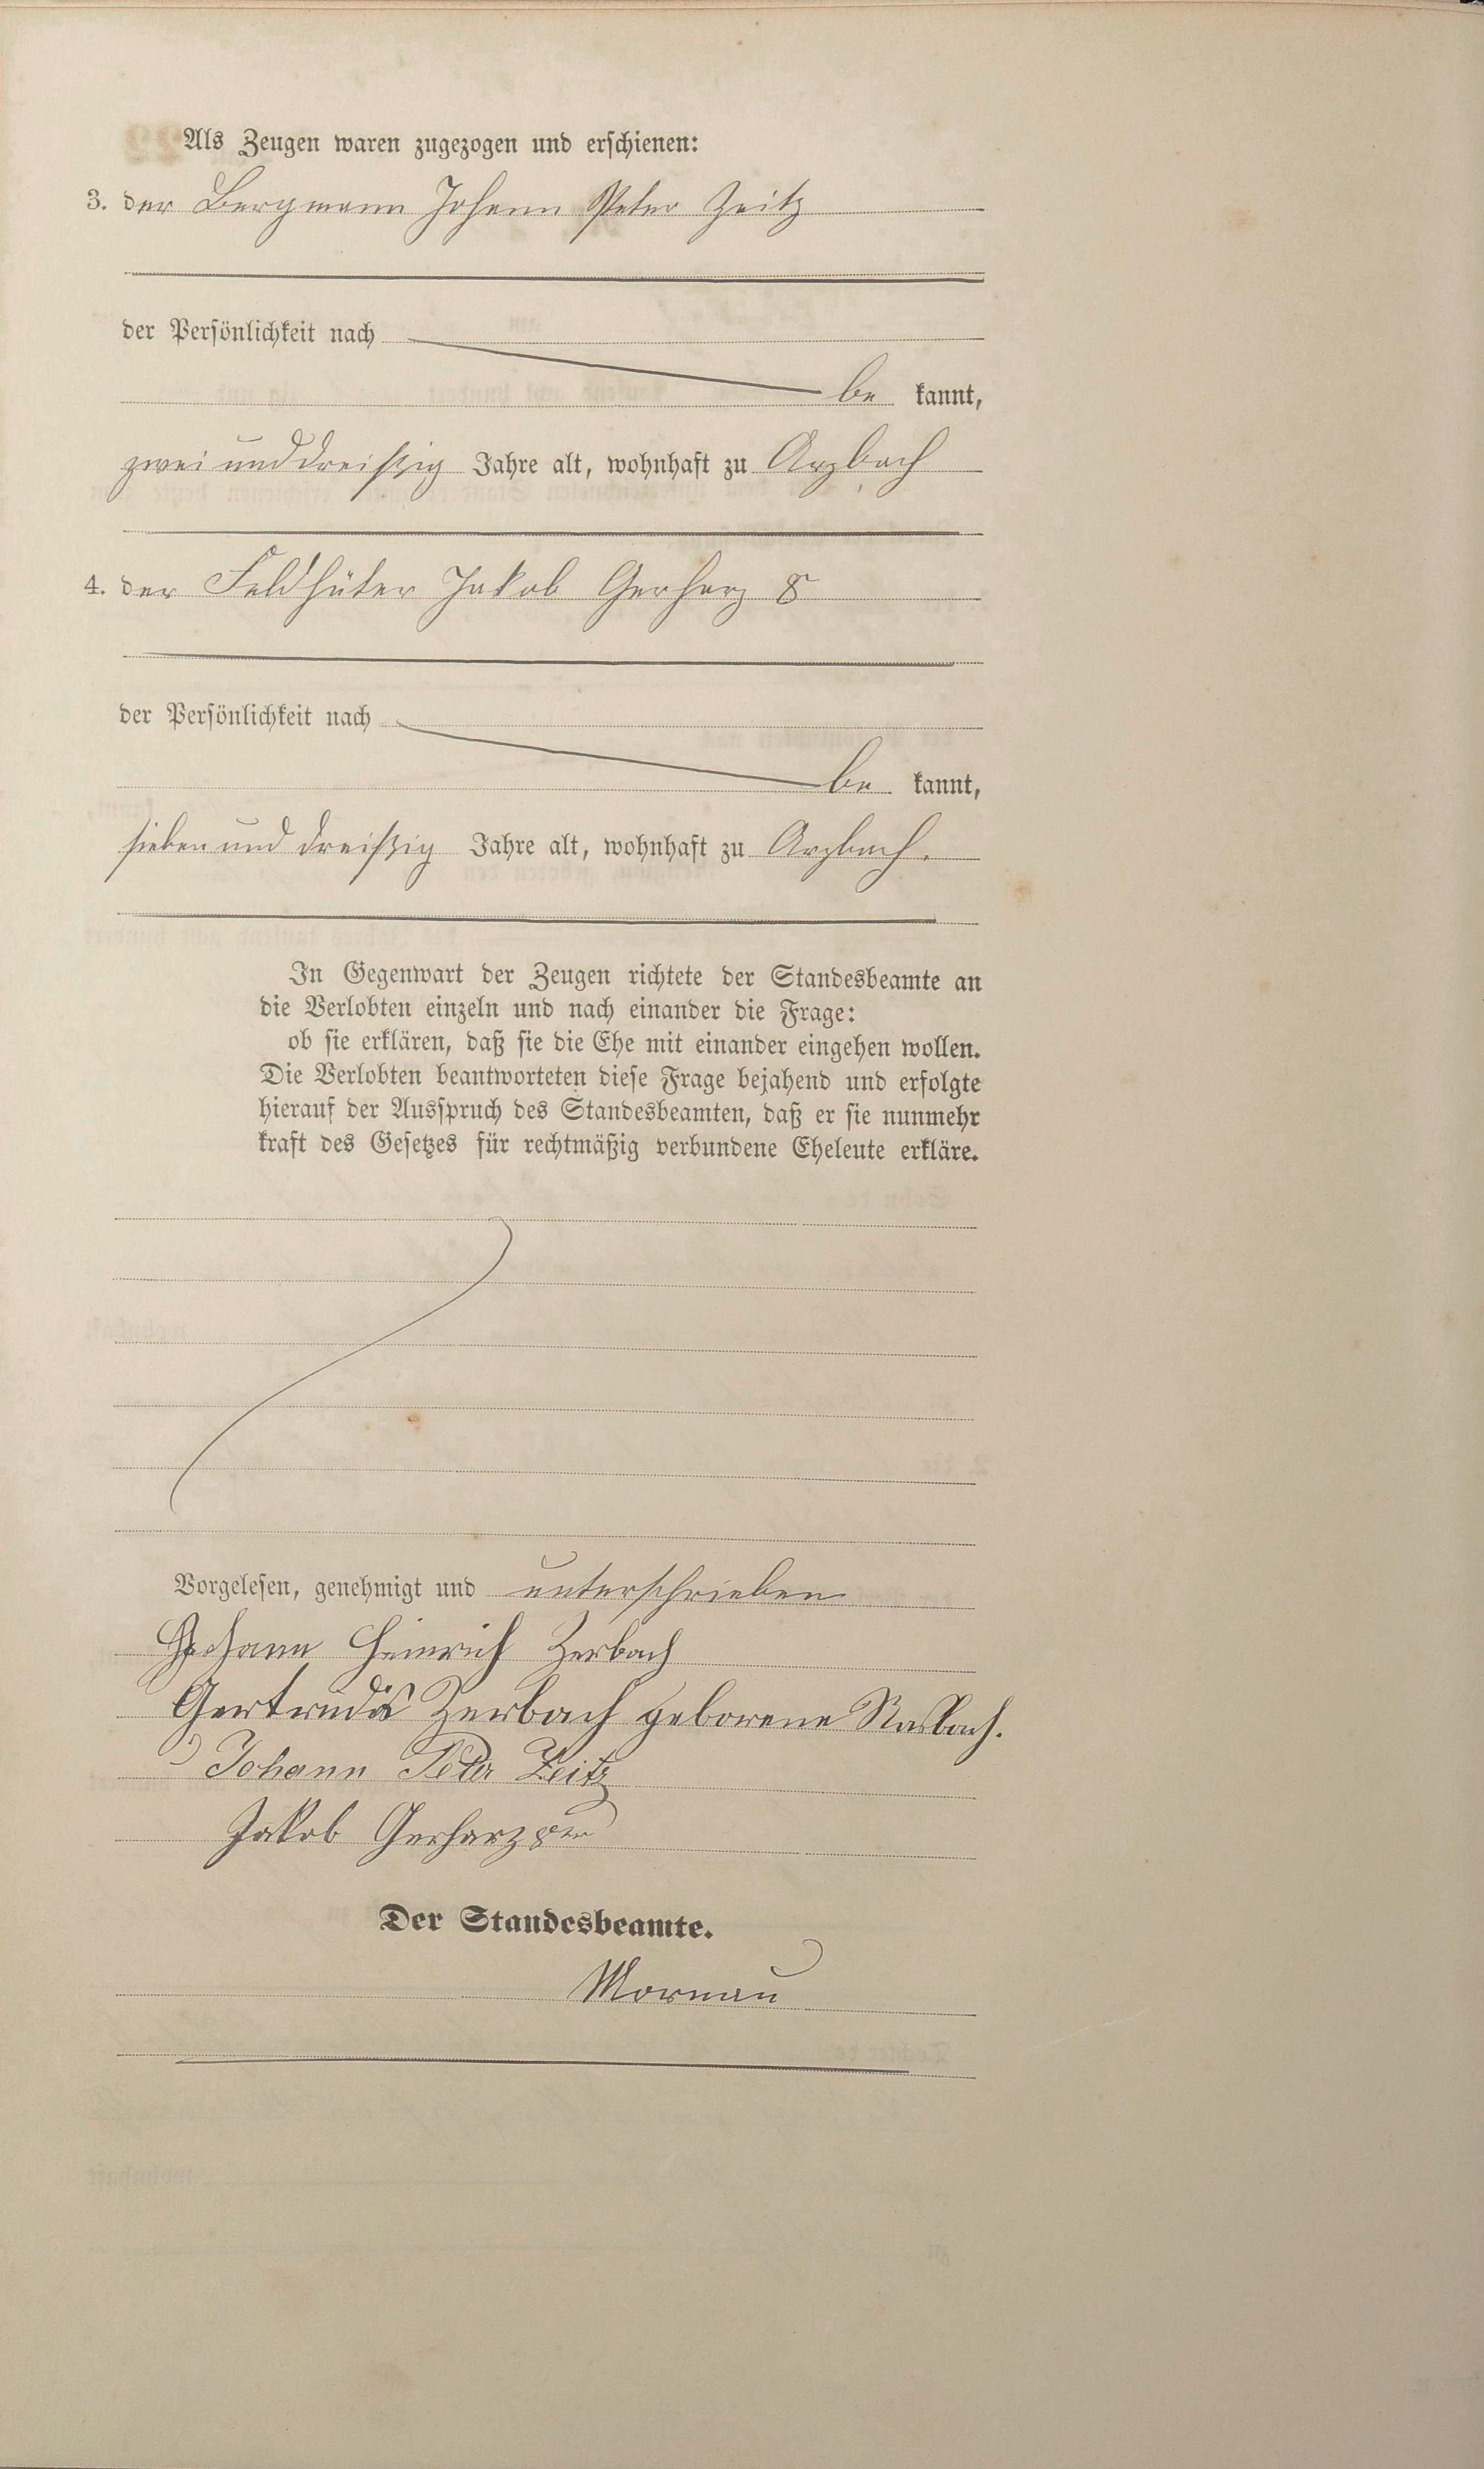 Als Zeugen waren zugezogen und erschienen:
3. der Bergmann Johann Peter Zeitz
der Persönlichkeit nach
be kannt,
zwei und dreißig Jahre alt, wohnhaft zu Arzbach
4. der Feldhüter Jakob Gerharz
der Persönlichkeit nach
be kannt,
sieben und dreißig Jahre alt, wohnhaft zu Arzbach.
In Gegenwart der Zeugen richtete der Standesbeamte an
die Verlobten einzeln und nach einander die Frage:
ob sie erklären, daß sie die Ehe mit einander eingehen wollen.
Die Verlobten beantworteten diese Frage bejahend und erfolgte
hierauf der Ausspruch des Standesbeamten, daß er sie nunmehr
kraft des Gesetzes für rechtmäßig verbundene Eheleute erkläre.
Vorgelesen, genehmigt und unterschrieben
Johann Heinrich Zerbach
Gertrudis Zerbach geborene
Johann Peter Zeitz
Jakob Gerharz
Der Standesbeamte.
Mornau